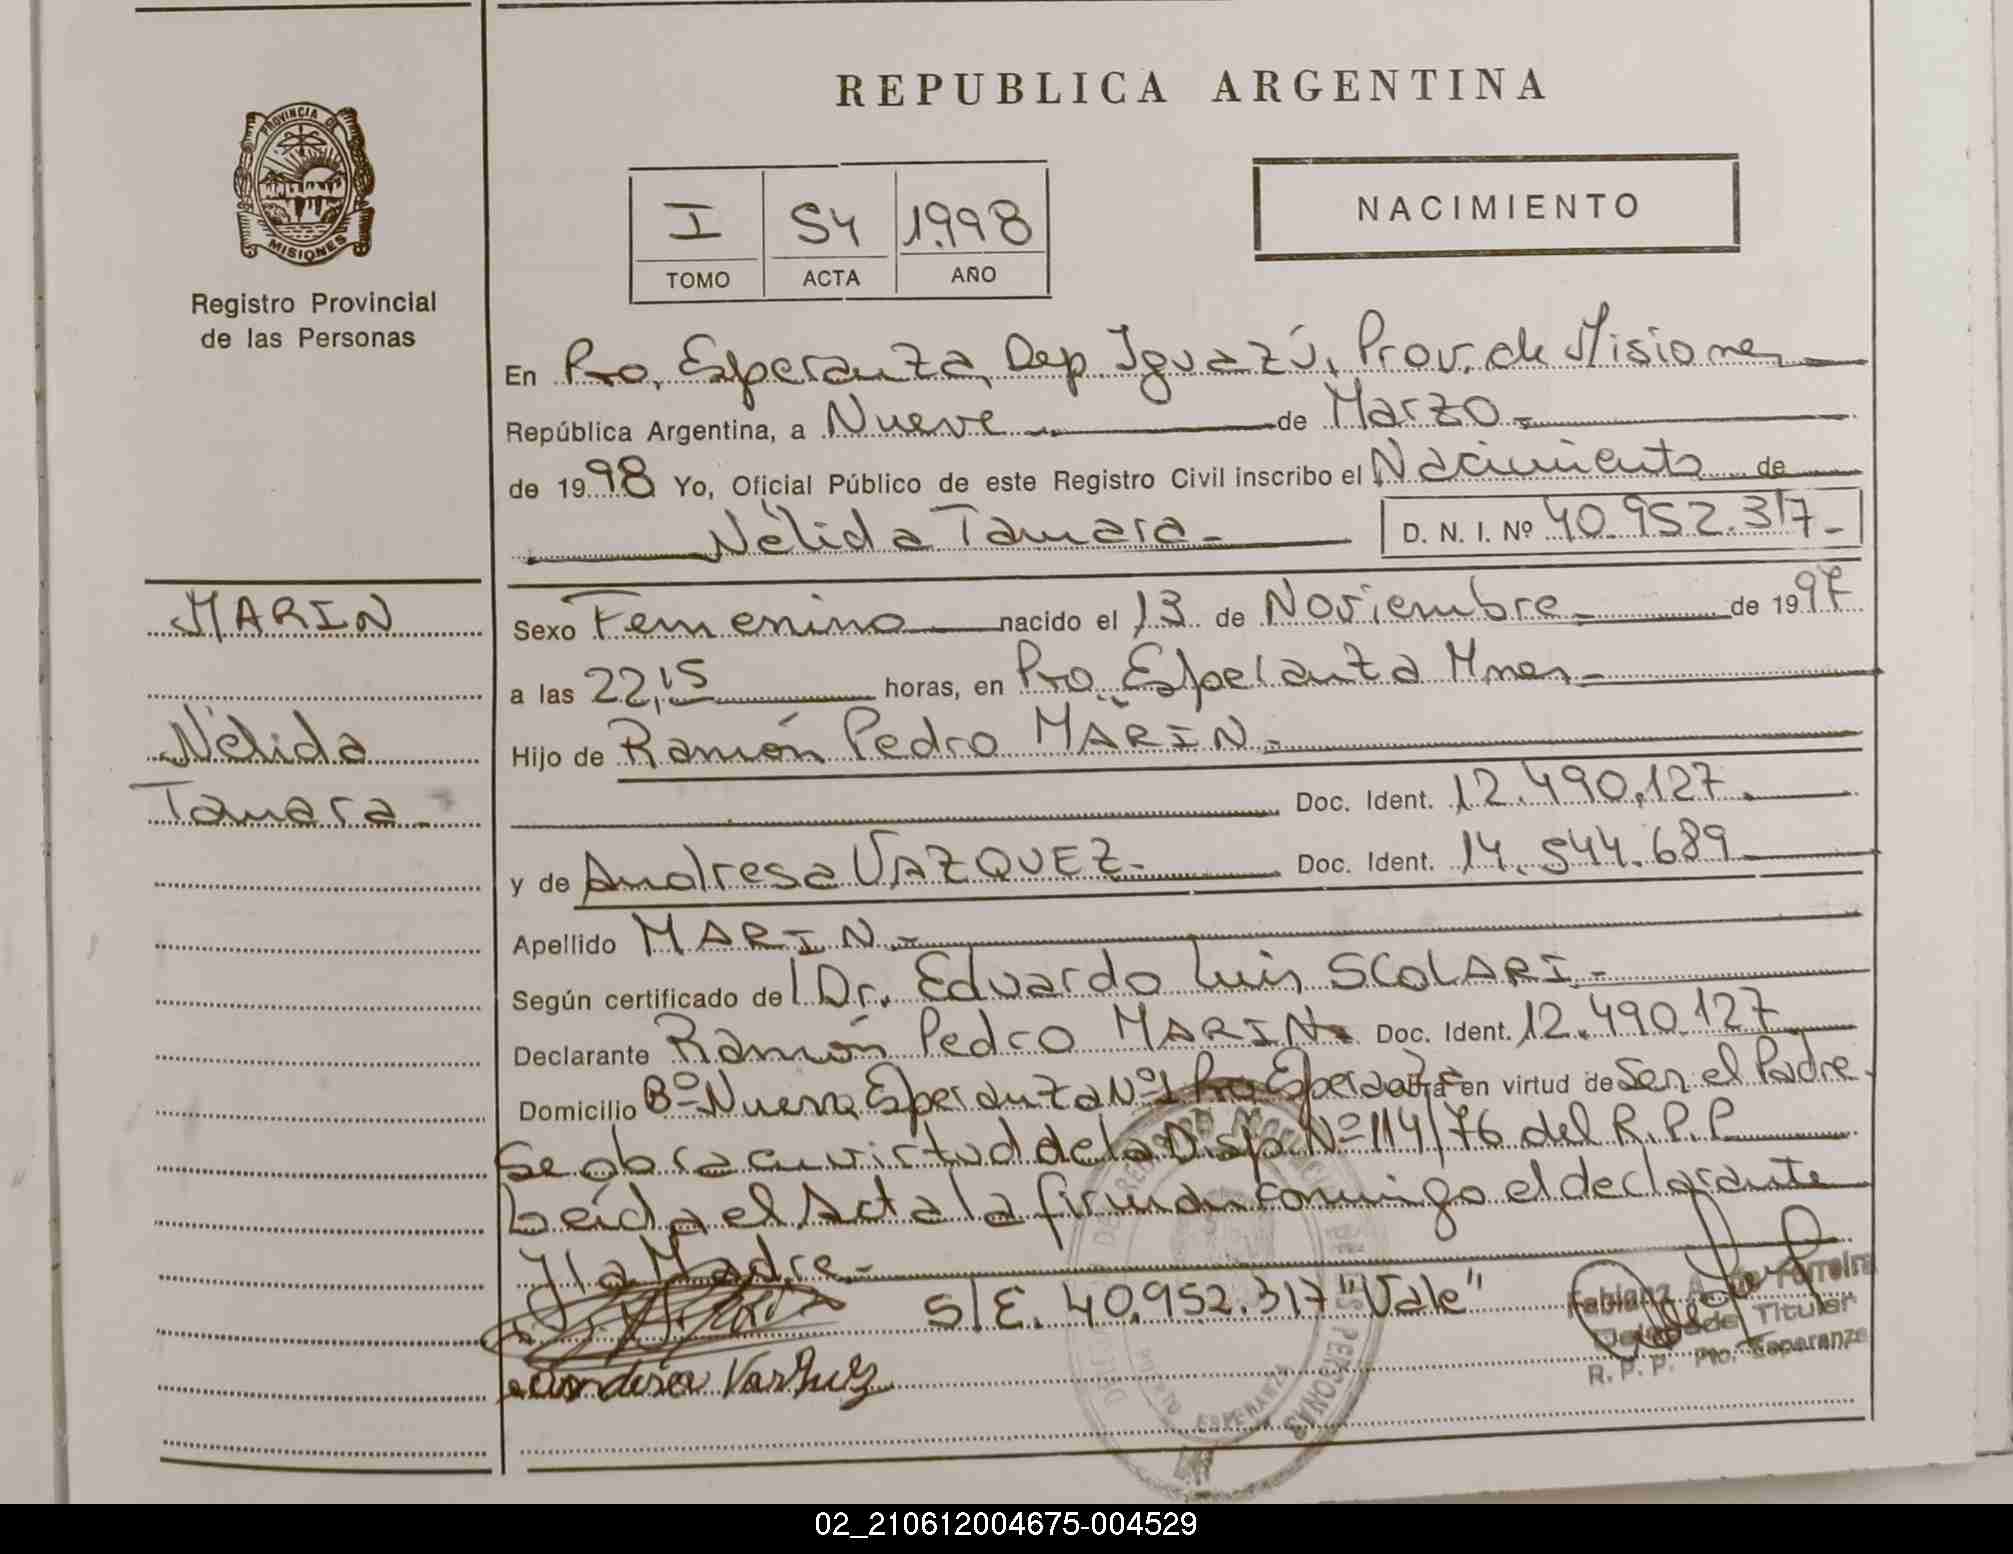 REPUBLICA ARGENTINA
PROVINCIA DE
MISIONES
Registro Provincial
de las Personas
I S4 1998
TOMO ACTA AÑO
NACIMIENTO
En Pto. Esperanza, Dep. Iguazú, Prov. de Misiones
República Argentina, a Nueve de Marzo
de 1998 Yo, Oficial Público de este Registro Civil inscribo el Nacimiento de
Nélida Tamara D. N. I. Nº 40.952.317-
MARIN
Nélida
Tamara.-
Sexo Femenino nacido el 13 de Noviembre de 1997
a las 22,15 horas, en Pto. Esperanza Mnes
Hijo de Ramón Pedro MARIN
Doc. Ident. 12.490.127
y de Andresa VAZQUEZ Doc. Ident. 14.544.689
Apellido MARIN
Según certificado del Dr. Eduardo Luis SCOLARI
Declarante Ramón Pedro MARIN Doc. Ident. 12.490.127
Domicilio Bº Nueva Esperanza Nº1 Pto Esperanza en virtud de Ser el Padre
Se obra en virtud de la Disp. Nº 114/76 del R.P.P
Leída el Acta la firman conmigo el declarante
y la Madre
S/E. 40.952.317 "Vale"
Titular
R. P. P. Pto. Esperanza
PUERTO ESPERANZA
02_210612004675-004529